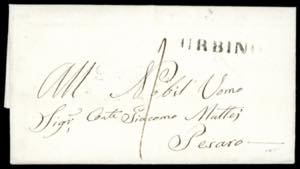 URBINO
1
All Nobil Uomo
Sigr. Conte Giacomo Mattei
Pesaro